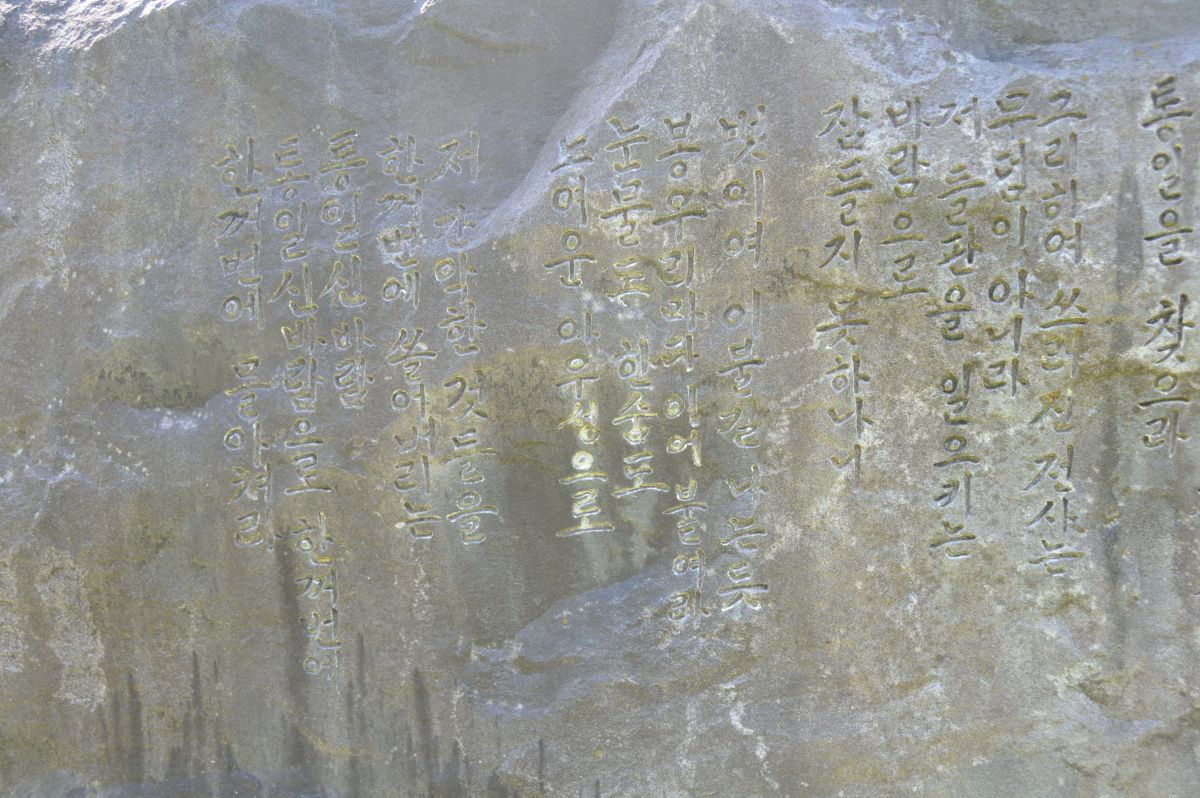 통일을 찾으라
그리하여 쓰러진 전사는
무덤이 아니라
저 들판을 일으키는
바람으로
잠들지 못하나니
벗이여 이불길 나는듯
봉우리마다이어
눈물도 한숨도
드매운 아우성으로
저 간악한 것들을
한꺼번에 쓸어내리는
통일신바람
통일신바람으로 한꺼번에
한꺼번에 몰아쳐라